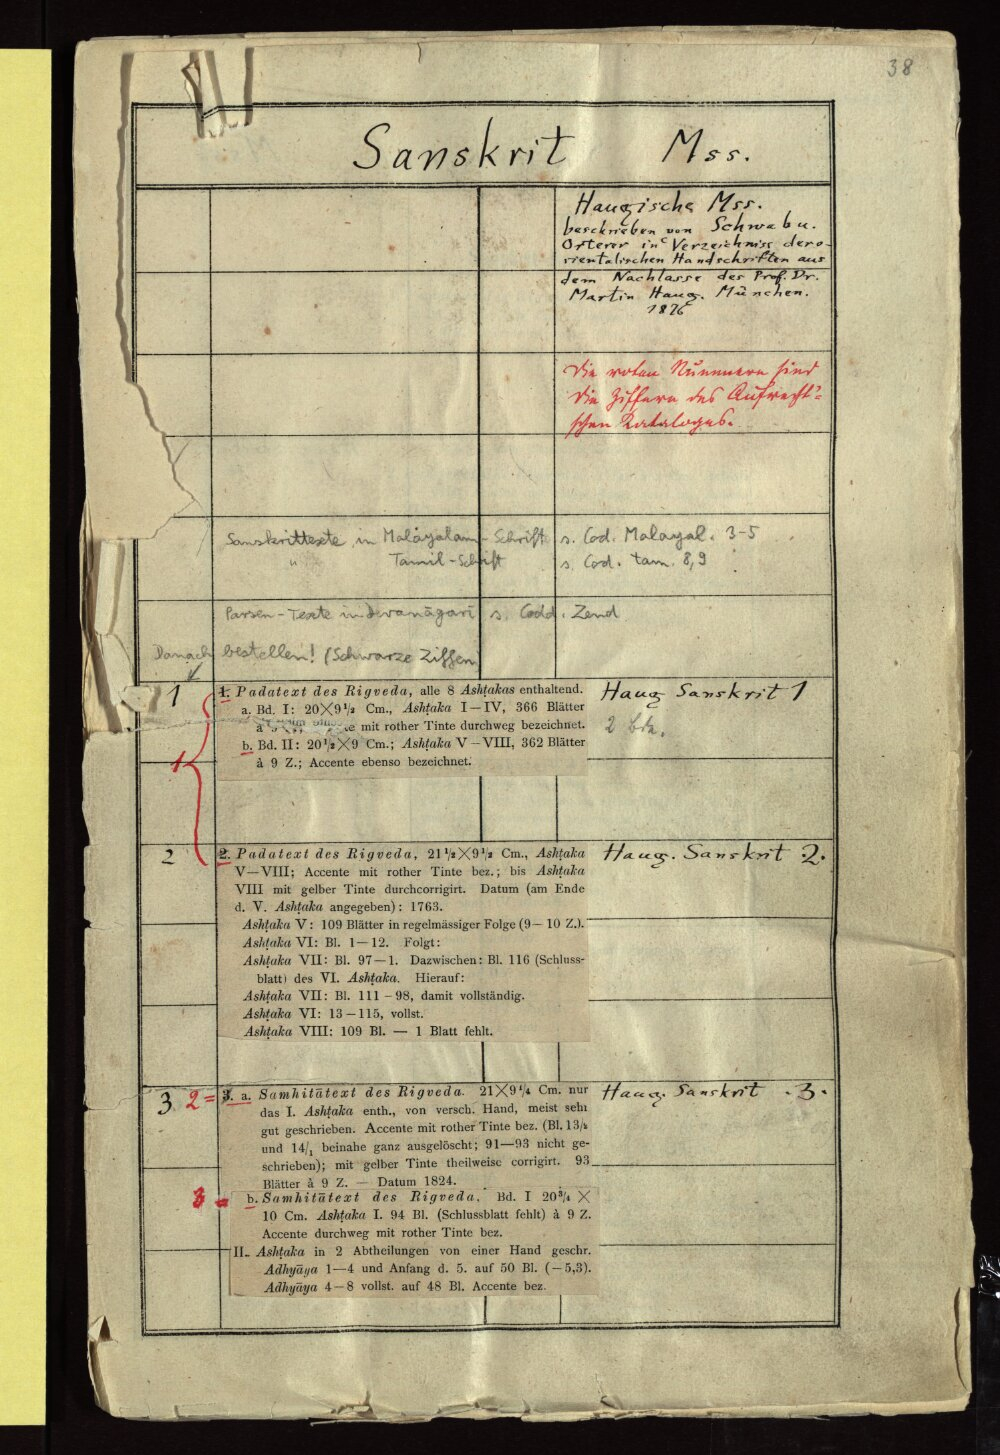 38
Sanskrit Mss.
Haugische Mss.
beschrieben von Schwab u.
Orterer in Verzeichniss der o-
rientalischen Handschriften aus
dem Nachlasse des Prof. Dr.
Martin Haug. München.
1876
Die roten Nummern sind
die Ziffern des Aufrecht'-
schen Kataloges.
Sanskrittexte in Malāyalam-Schrift s. Cod. Malayal. 3-5
" Tamil-Schrift s. Cod. tam. 8,9
Parsen-Texte in Devanāgari s. Codd. Zend
Danach bestellen! (Schwarze Ziffern
1
1
1. Padatext des Rigveda, alle 8 Ashṭakas enthaltend.
a. Bd. I: 20×9½ Cm., Ashṭaka I—IV, 366 Blätter
à 9 mit rother Tinte durchweg bezeichnet.
b. Bd. II: 20½×9 Cm.; Ashṭaka V—VIII, 362 Blätter
à 9 Z.; Accente ebenso bezeichnet.
Haug Sanskrit 1
2 Bde.
2
2. Padatext des Rigveda, 21½×9½ Cm., Ashṭaka
V—VIII; Accente mit rother Tinte bez.; bis Ashṭaka
VIII mit gelber Tinte durchcorrigirt. Datum (am Ende
d. V. Ashṭaka angegeben): 1763.
Ashṭaka V: 109 Blätter in regelmässiger Folge (9—10 Z.).
Ashṭaka VI: Bl. 1—12. Folgt:
Ashṭaka VII: Bl. 97—1. Dazwischen: Bl. 116 (Schluss-
blatt) des VI. Ashṭaka. Hierauf:
Ashṭaka VII: Bl. 111—98, damit vollständig.
Ashṭaka VI: 13—115, vollst.
Ashṭaka VIII: 109 Bl. — 1 Blatt fehlt.
Haug. Sanskrit .2.
3 2=
3. a. Samhitātext des Rigveda. 21×9¼ Cm. nur
das I. Ashṭaka enth., von versch. Hand, meist sehr
gut geschrieben. Accente mit rother Tinte bez. (Bl. 13/2
und 14/1 beinahe ganz ausgelöscht; 91—93 nicht ge-
schrieben); mit gelber Tinte theilweise corrigirt. 93
Blätter à 9 Z. — Datum 1824.
3 =
b. Samhitātext des Rigveda. Bd. I 20¾ ×
10 Cm. Ashṭaka I. 94 Bl. (Schlussblatt fehlt) à 9 Z.
Accente durchweg mit rother Tinte bez.
II. Ashṭaka in 2 Abtheilungen von einer Hand geschr.
Adhyāya 1—4 und Anfang d. 5. auf 50 Bl. (—5,3).
Adhyāya 4—8 vollst. auf 48 Bl. Accente bez.
Haug. Sanskrit .3.